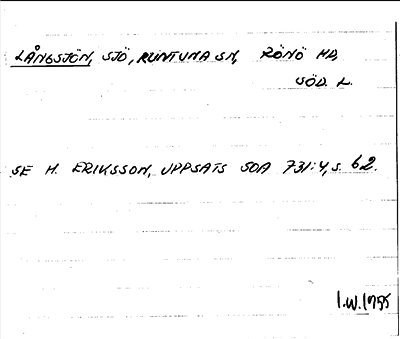 LÅNGSJÖN, SJÖ, RUNTUNA SN, RÖNÖ HD,
SÖD. L.
SE H. ERIKSSON, UPPSATS SOA 731:4, S. 62.
I.W.1955